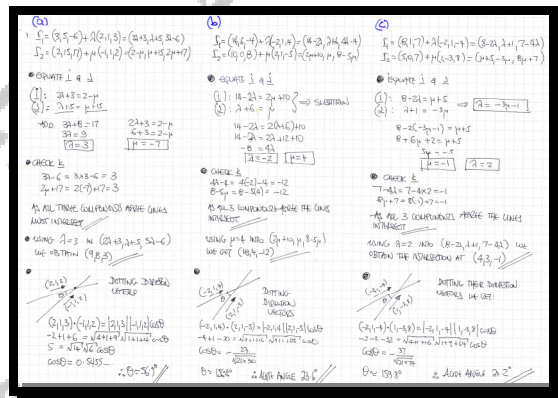 (a)
1 r₁ = (3,5,-6) + λ(2,1,3) = (2λ+3, λ+5, 3λ-6)
r₂ = (2,15,17) + μ(-1,1,2) = (2-μ, μ+15, 2μ+17)
• EQUATE i & j
(i): 2λ+3 = 2-μ
(j): λ+5 = μ+15
ADD 3λ+8 = 17
3λ = 9
λ = 3
2λ+3 = 2-μ
6+3 = 2-μ
μ = -7
• CHECK k
3λ-6 = 3×3-6 = 3
2μ+17 = 2(-7)+17 = 3
AS ALL THREE COMPONENTS AGREE LINES
MUST INTERSECT
• USING λ=3 IN (2λ+3, λ+5, 3λ-6)
WE OBTAIN (9,8,3)
(2,1,3)
θ
(-1,1,2)
DOTTING DIRECTION
VECTORS
(2,1,3)·(-1,1,2) = |2,1,3||-1,1,2|cosθ
-2+1+6 = √4+1+9 √1+1+4 cosθ
5 = √14 √6 cosθ
cosθ = 0.5455...
∴ θ ≈ 56.9°
(b)
• EQUATE i & j
(i): 14-2λ = 2μ+10
(j): λ+6 = μ
⇒ SUBSTITUTION
14-2λ = 2(λ+6)+10
14-2λ = 2λ+12+10
-8 = 4λ
λ = -2 μ = 4
• CHECK k
4λ-4 = 4(-2)-4 = -12
8-5μ = 8-5(4) = -12
AS ALL 3 COMPONENTS AGREE THE LINES
INTERSECT
USING μ=4 INTO (2μ+10, μ, 8-5μ)
WE GET (18,4,-12)
(-2,1,4)
θ
(2,1,-5)
DOTTING
DIRECTION
VECTORS
(-2,1,4)·(2,1,-5) = |-2,1,4||2,1,-5|cosθ
-4+1-20 = √4+1+16 √4+1+25 cosθ
cosθ = -23/√21√30
∴ ACUTE ANGLE 23.6°
(c)
r₁ = (8,1,7) + λ(-2,1,-4) = (8-2λ, λ+1, 7-4λ)
r₂ = (5,0,7) + μ(1,-3,8) = (μ+5, -3μ, 8μ+7)
• EQUATE i & j
(i): 8-2λ = μ+5
(j): λ+1 = -3μ
⇒ λ = -3μ-1
8-2(-3μ-1) = μ+5
8+6μ+2 = μ+5
5μ = -5
μ = -1 λ = 2
• CHECK k
7-4λ = 7-4×2 = -1
8μ+7 = 8(-1)+7 = -1
AS ALL 3 COMPONENTS AGREE THE LINES
INTERSECT
USING λ=2 INTO (8-2λ, λ+1, 7-4λ) WE
OBTAIN THE INTERSECTION AT (4,3,-1)
(-2,1,-4)
θ
(1,-3,8)
DOTTING THEIR DIRECTION
VECTORS WE GET:
(-2,1,-4)·(1,-3,8) = |-2,1,-4||1,-3,8|cosθ
-2-3-32 = √4+1+16 √1+9+64 cosθ
cosθ = -37/√21√74
θ ≈ 159.8° ∴ ACUTE ANGLE 20.2°